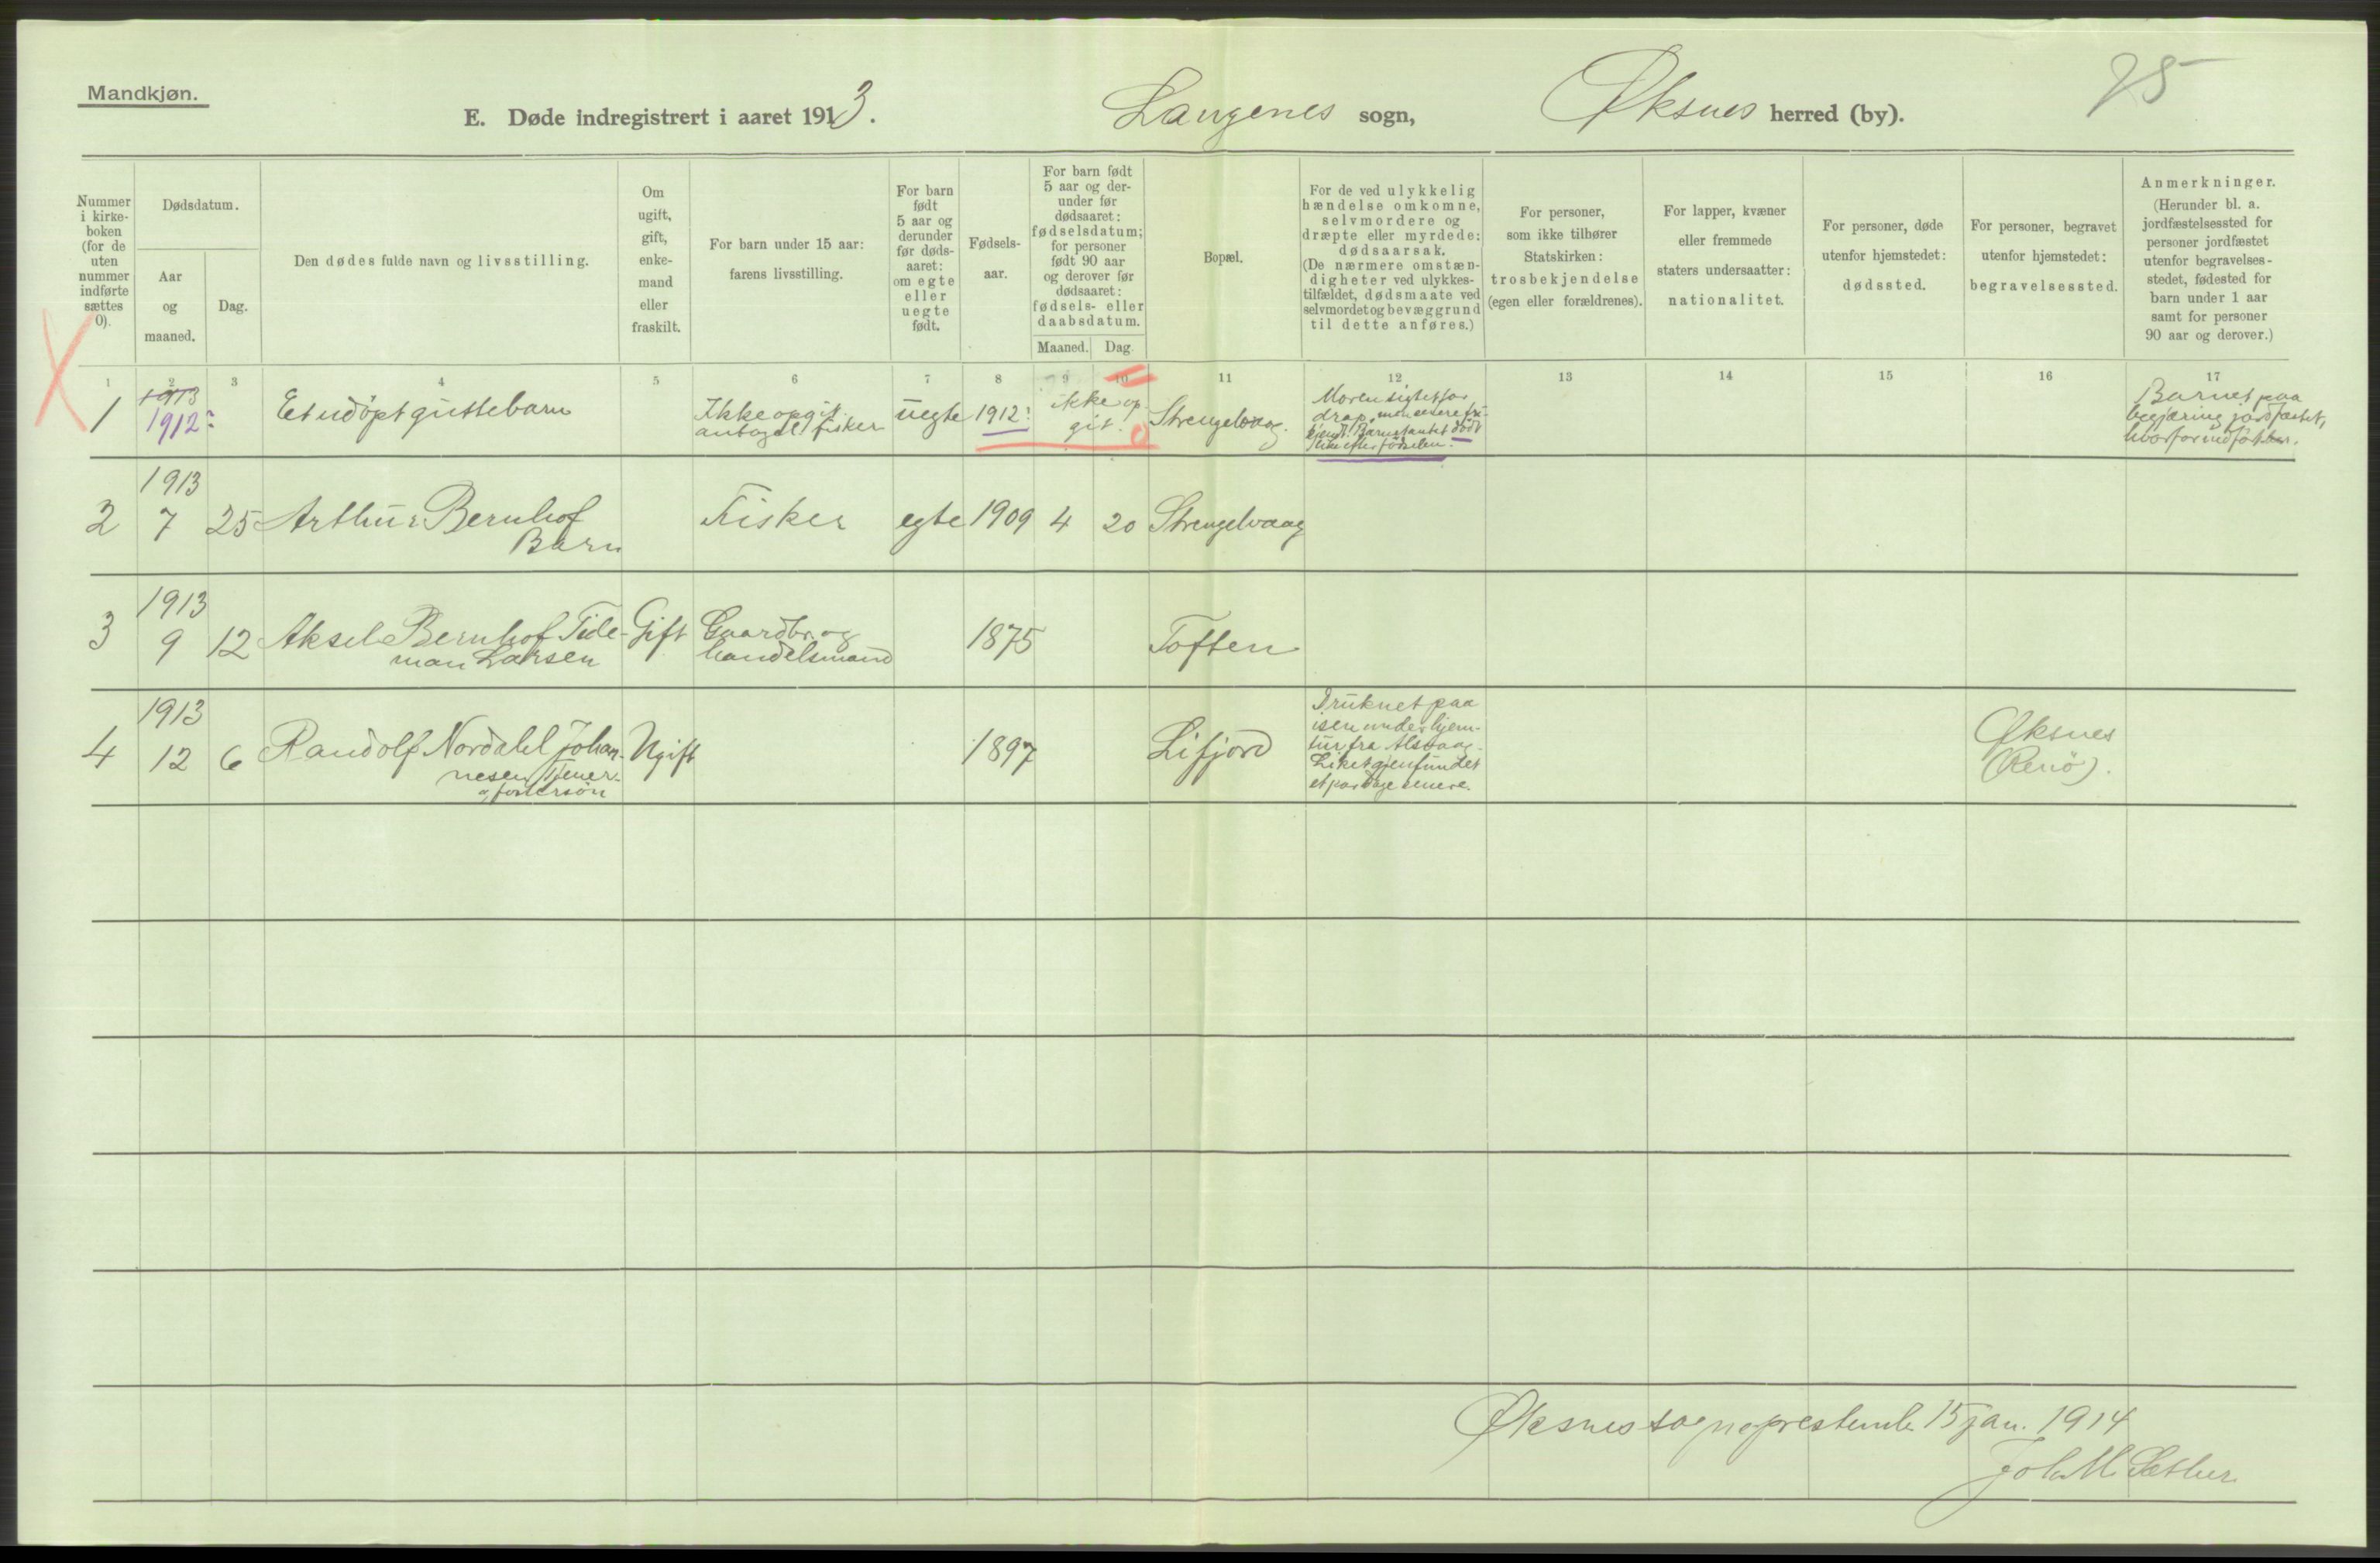 Mandkjøn.
E. Døde indregistrert i aaret 1913. Langenes sogn, Øksnes herred (by).
75
Nummer i kirke- boken (for de uten nummer indførte sættes 0).
Dødsdatum.
Aar og maaned.
Dag.
Den dødes fulde navn og livsstilling.
Om ugift, gift, enke- mand eller fraskilt.
For barn under 15 aar: farens livsstilling.
For barn født 5 aar og derunder før døds- aaret: om egte eller uegte født.
Fødsels- aar.
For barn født 5 aar og der- under før dødsaaret: fødselsdatum; for personer født 90 aar og derover før dødsaaret: fødsels- eller daabsdatum.
Maaned. Dag.
Bopæl.
For de ved ulykkelig hændelse omkomne, selvmordere og dræpte eller myrdede: dødsaarsak. (De nærmere omstæn- digheter ved ulykkes- tilfældet, dødsmaate ved selvmordet og bevæggrund til dette anføres.)
For personer, som ikke tilhører Statskirken: trosbekjendelse (egen eller forældrenes).
For lapper, kvæner eller fremmede staters undersaatter: nationalitet.
For personer, døde utenfor hjemstedet: dødssted.
For personer, begravet utenfor hjemstedet: begravelsessted.
Anmerkninger. (Herunder bl. a. jordfæstelsessted for personer jordfæstet utenfor begravelses- stedet, fødested for barn under 1 aar samt for personer 90 aar og derover.)
1 2 3 4 5 6 7 8 9 10 11 12 13 14 15 16 17
1 1913 1912: Et udöpt guttebarn
Ikke opgit. antagel. fisker
uegte 1912: ikke op- git. Strengelvaag.
Moren sigtet for
drap, men senere fri-
kjendt. Barnet antat dödt
like efter födselen.
Barnet paa
begjæring jordfæstet,
hvorfor indfört her.
1913
2 7 25 Arthur Bernhof
Barn
Fisker egte 1909 4 20 Strengelvaag
1913
3 9 12 Aksel Bernhof Tide-
man Larsen
Gift Gaardbr. og
handelsmand
1875 Toften
1913
4 12 6 Randolf Nordahl Johan-
nesen Tjener.
og fostersön
Ugift 1897 Lifjord
Druknet paa
isen under hjem-
tur fra Alsvaag.
Liket gjenfundet
et par dage senere.
Øksnes
(Renö).
Øksnes sogneprestemb. 15 jan. 1914
Joh. M. Sether